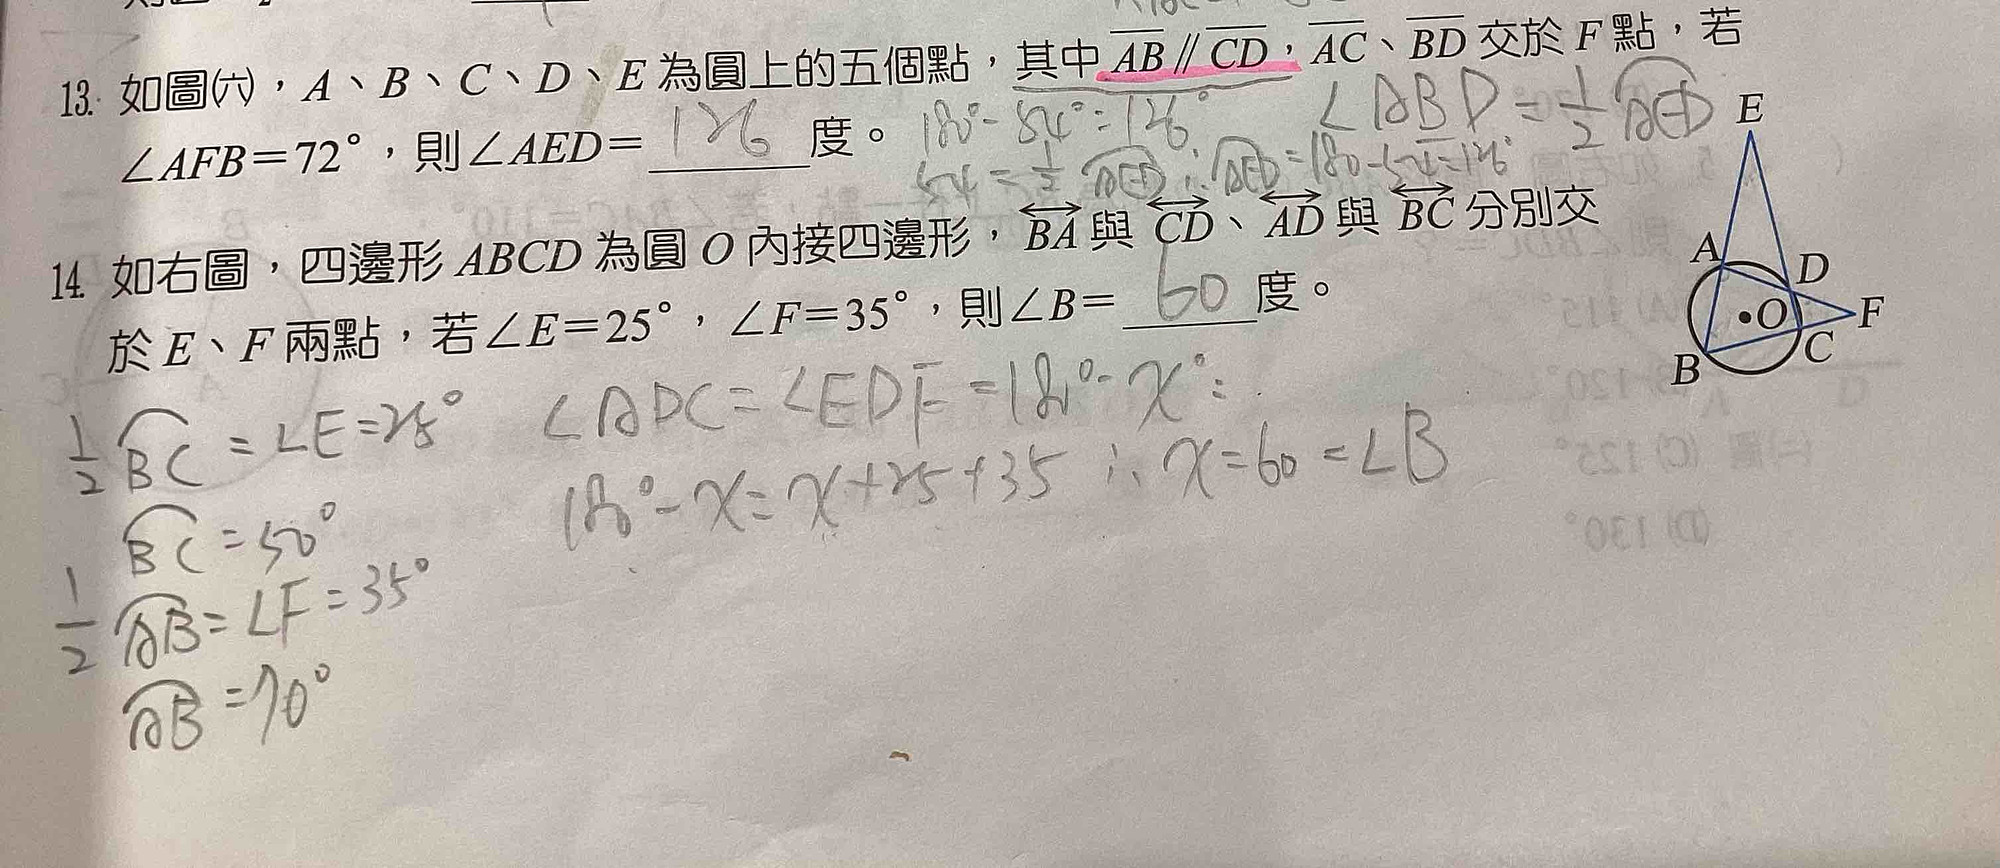 13. 如圖㈥，A、B、C、D、E 為圓上的五個點，其中 AB // CD，AC、BD 交於 F 點，若
∠AFB=72°，則∠AED= 126 度。
180°-54°=126°
∠ABD=1/2 AED
54=1/2 AED ∴ AED=180-54=126°
14. 如右圖，四邊形 ABCD 為圓 O 內接四邊形，BA 與 CD、AD 與 BC 分別交
於 E、F 兩點，若∠E=25°，∠F=35°，則∠B= 60 度。
E
A
D
O
F
C
B
1/2 BC = ∠E=25°
BC = 50°
1/2 AB = ∠F = 35°
AB = 70°
∠ADC = ∠EDF = 180°- x°
180°- x = x+25+35 ∴ x=60 = ∠B
(C) 125°
(D) 130°